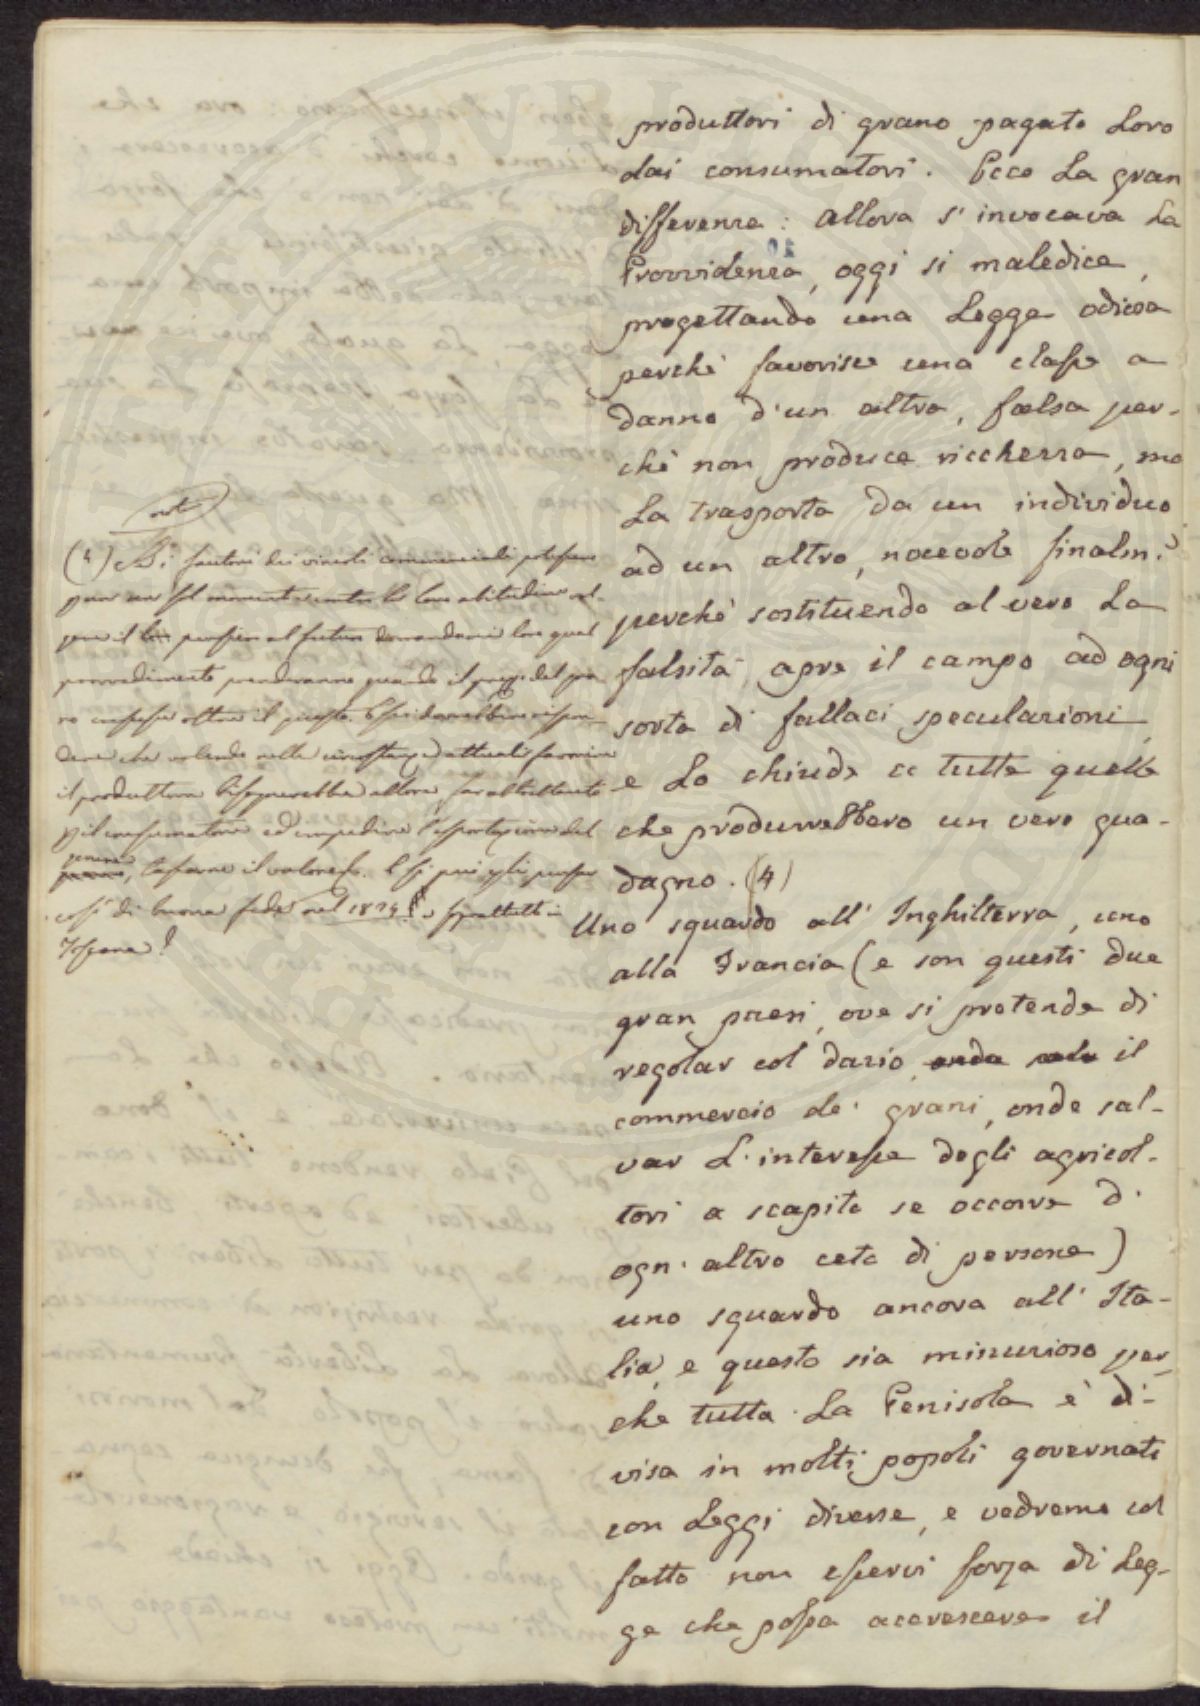 produttori di grano pagato Loro
dai consumatori. Ecco La gran
differenza: allora s'invocava La
Provvidenza, oggi si maledice,
progettando una Legge odiosa
perchè favorisce una classe a
danno d'un altra, falsa per-
chè non produce ricchezza, ma
La trasporta da un individuo
ad un altro, nocevole finalm.e
perchè sostituendo al vero La
falsità, apre il campo ad ogni
sorta di fallaci speculazioni,
e Lo chiude a tutte quelle
che produrrebbero un vero gua-
dagno. (4)
Uno sguardo all'Inghilterra, uno
alla Francia (e son questi due
gran paesi, ove si pretende di
regolar col dazio, onde il
commercio de' grani, onde sal-
var L'interesse degli agricol-
tori a scapito se occorre d'
ogn'altro ceto di persone)
uno sguardo ancora all'Ita-
lia, e questo sia minuzioso per
che tutta La Penisola è di-
visa in molti popoli governati
con Leggi diverse, e vedremo col
fatto non esservi forza di Leg-
ge che possa accrescere il
not
(4) Se i fautori dei vincoli commerciali potessero
per un sol momento contro le loro abitudini vol-
gere il pensiero al futuro domanderei loro qual
provvedimento prenderanno quando il prezzo del gra
no crescesse oltre il giusto. Essi dovrebbero rispon-
dere che volendo nelle circostanze attuali favorire
il produttore bisognerebbe allora far altrettanto
p il consumatore ed impedire l'esportazione del
genere, tassarne il valore &c. E si può egli pensar
così di buona fede nel 1824 e sopratutto in
Toscana?